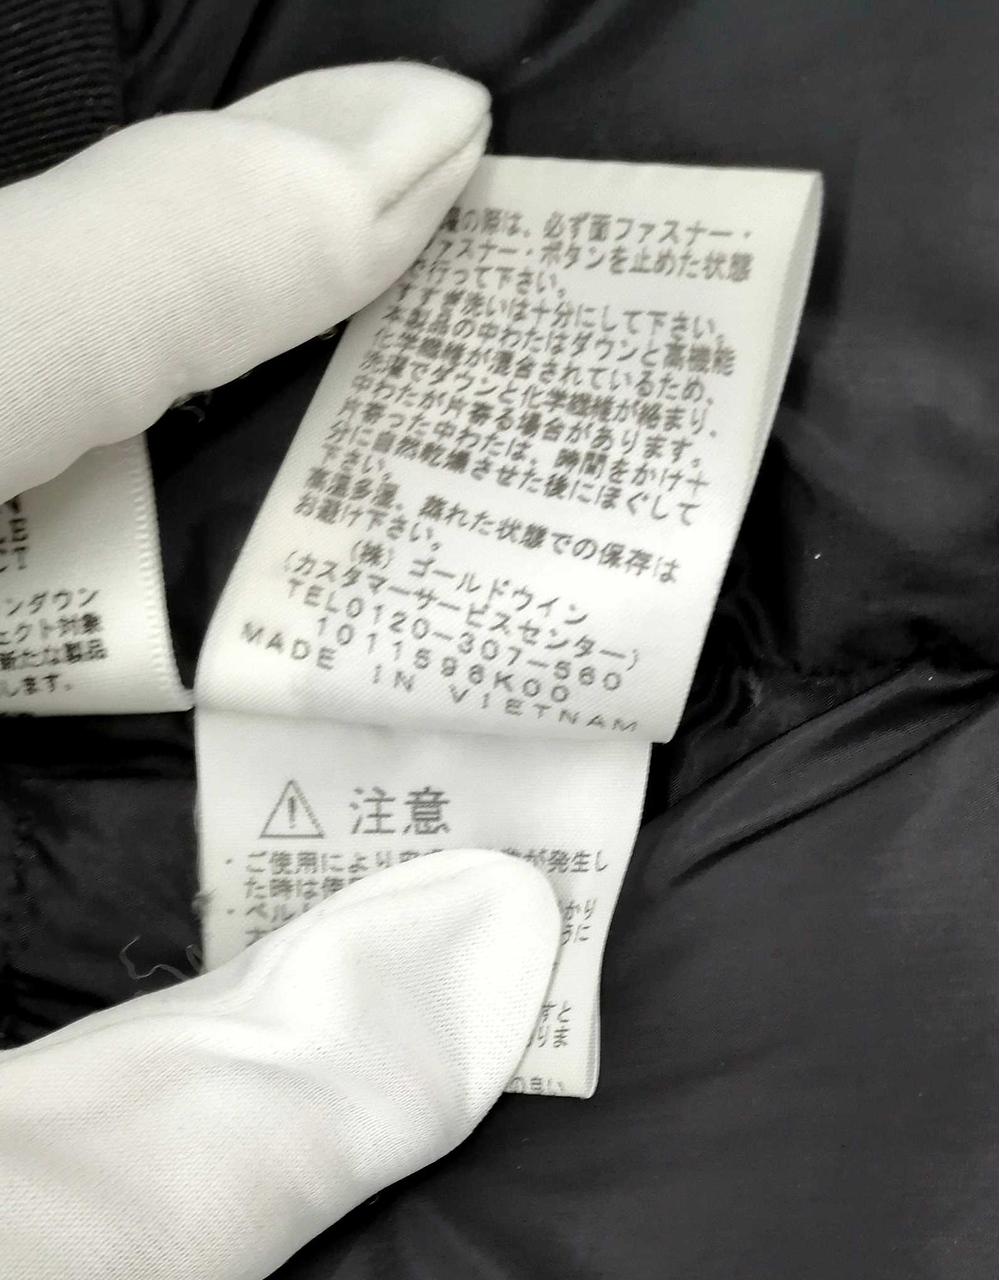 の際は、必ず面ファスナー・
ファスナー・ボタンを止めた状態
で行って下さい。
すすぎ洗いは十分にして下さい。
本製品の中わたはダウンと高機能
化学繊維が混合されているため、
洗濯でダウンと化学繊維が絡まり、
中わたが片寄る場合があります。
片寄った中わたは、時間をかけ十
分に自然乾燥させた後にほぐして
下さい。
高温多湿、蒸れた状態での保存は
お避け下さい。
(株)ゴールドウイン
(カスタマーサービスセンター)
TEL0120-307-560
1011598K00
MADE IN VIETNAM
ンダウン
ェクト対象
新たな製品
します。
注意
・ご使用により
が発生し
た時は使
・ベル
かり
に
すと
りま
の良い